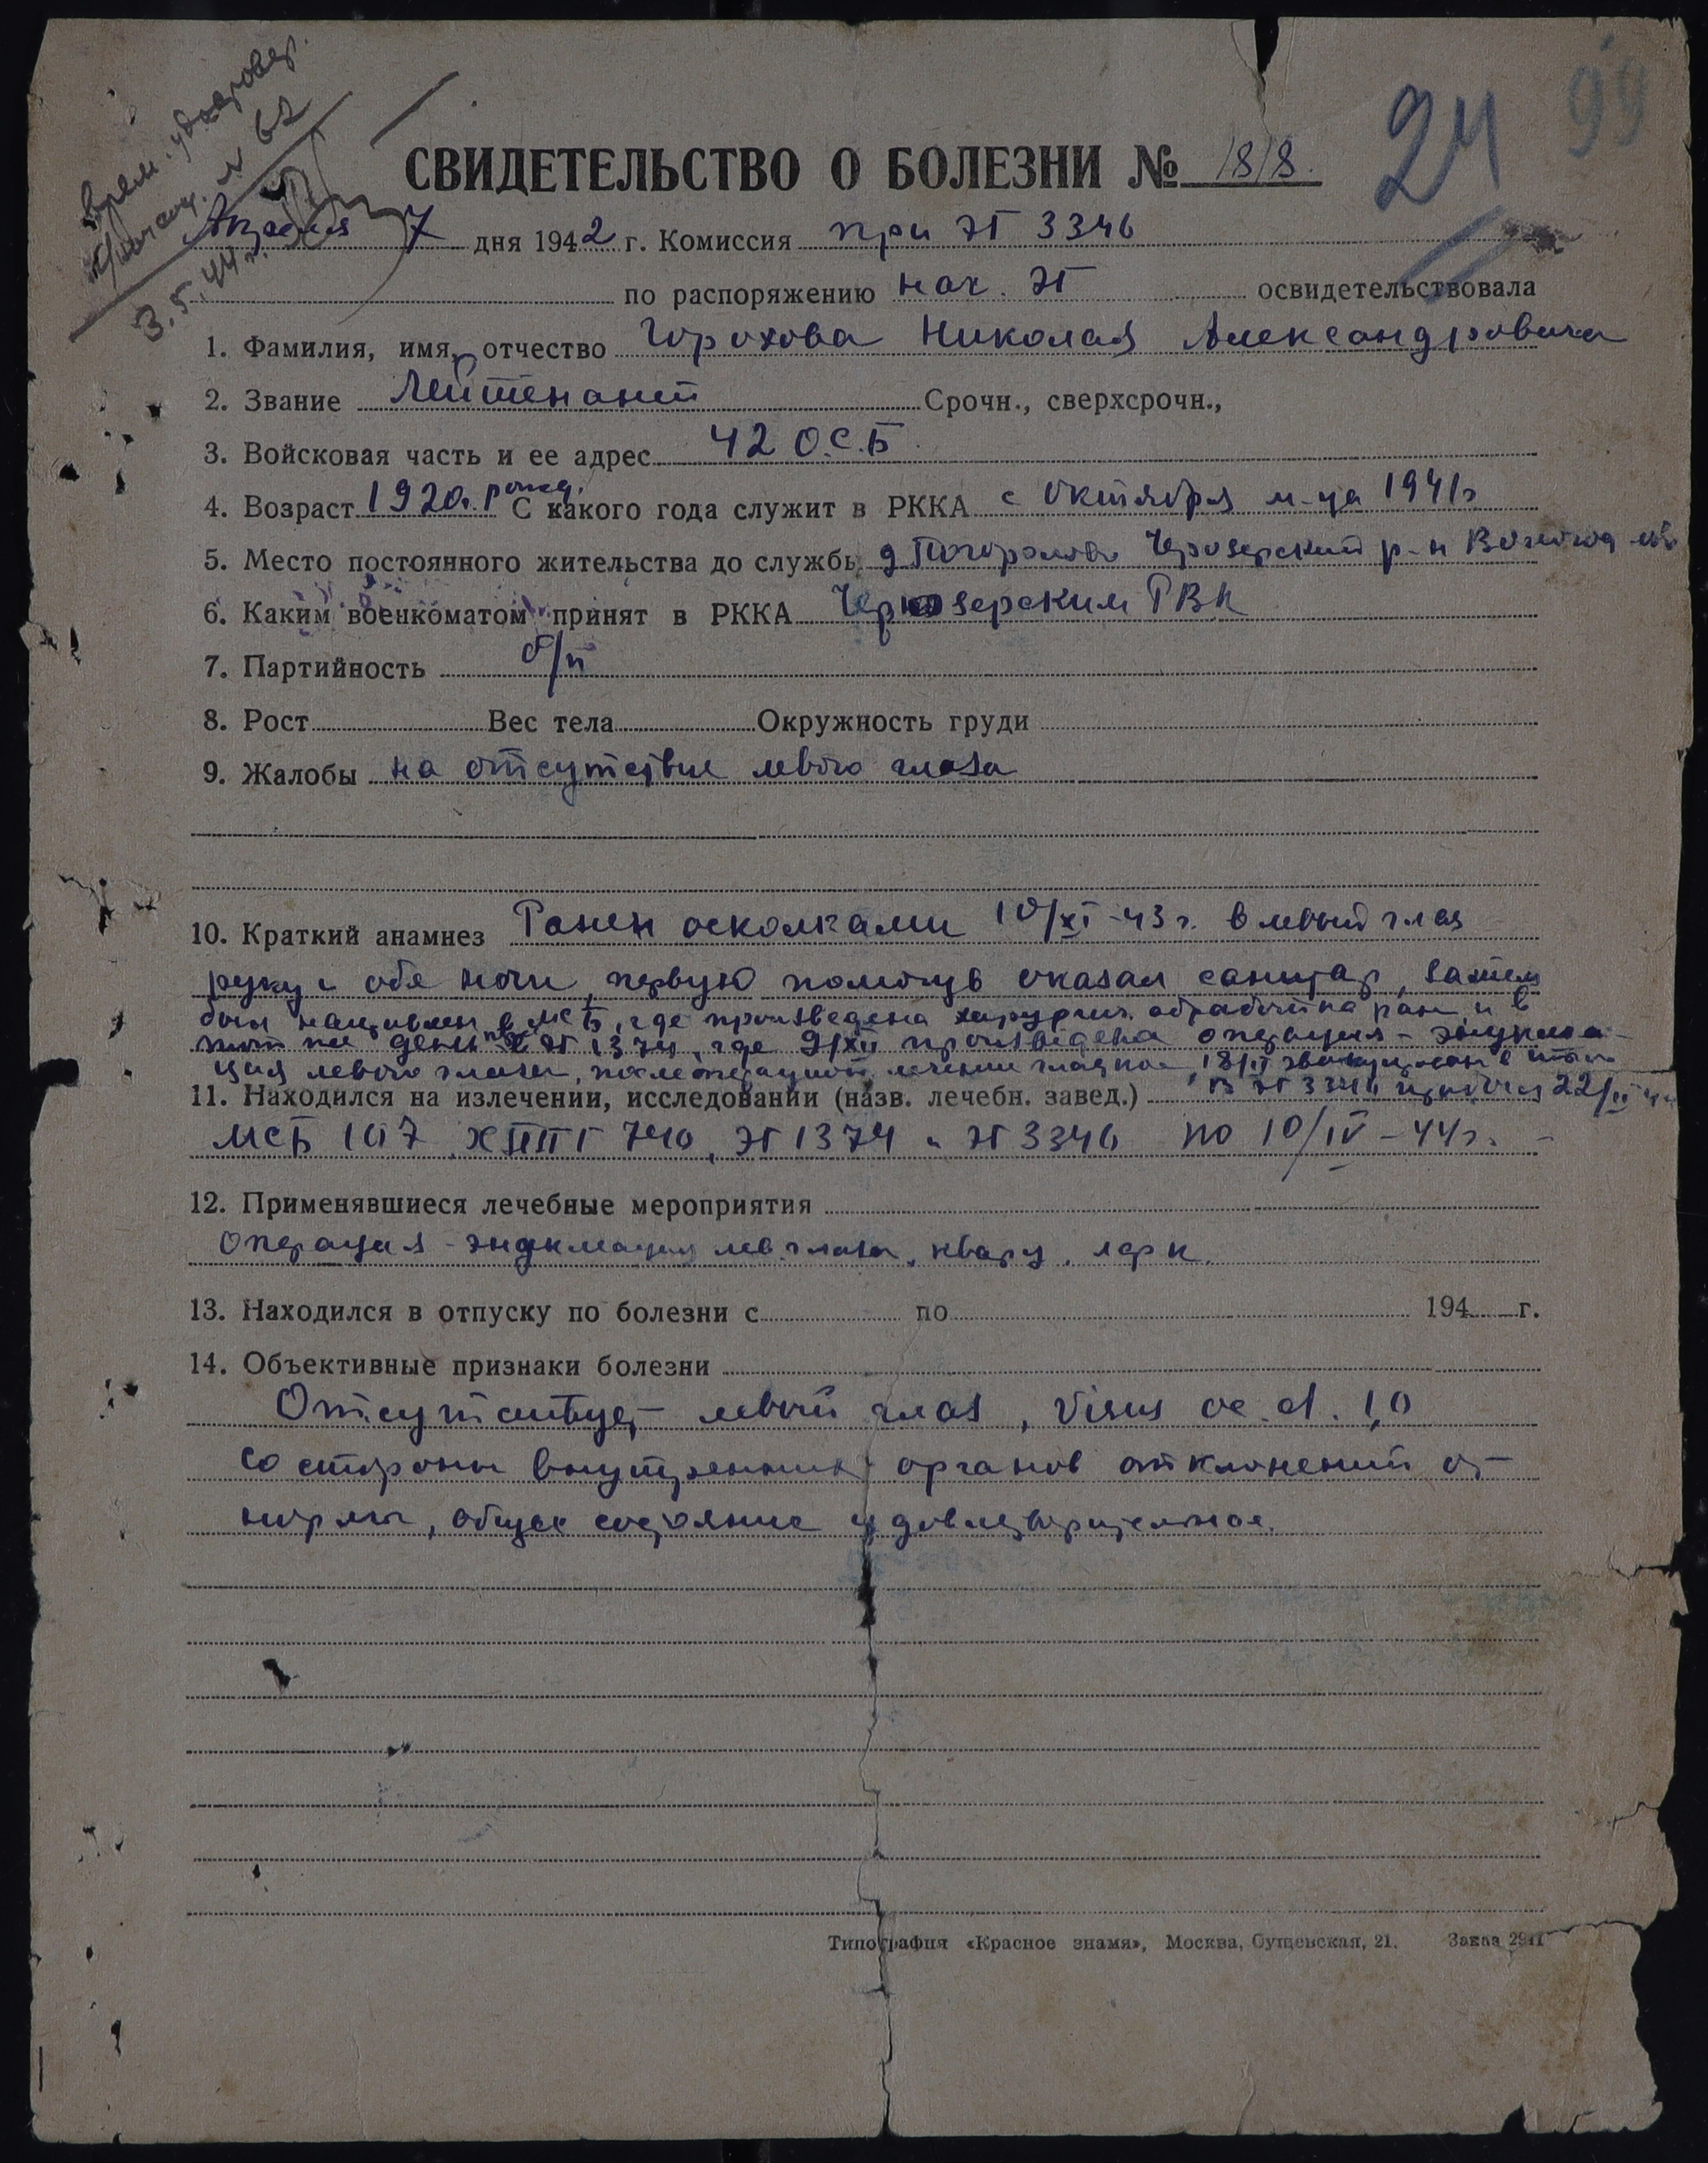 24 99
Врем. удостовер.
№ 62
3.5.44 г.
СВИДЕТЕЛЬСТВО О БОЛЕЗНИ № 1818.
Апреля 7 дня 1942 г. Комиссия при ЭГ 3346
по распоряжению нач. ЭГ освидетельствовала
1. Фамилия, имя, отчество Горохова Николая Александровича
2. Звание Лейтенант Срочн., сверхсрочн.,
3. Войсковая часть и ее адрес 42 О.С.Б.
4. Возраст 1920 г. рожд. С какого года служит в РККА с октября м-ца 1941 г.
5. Место постоянного жительства до службы д. Чарозерский р-н Вологод. обл
6. Каким военкоматом принят в РККА Чарозерским РВК
7. Партийность б/п
8. Рост Вес тела Окружность груди
9. Жалобы на отсутствие левого глаза
10. Краткий анамнез Ранен осколками 10/XI-43 г. в левый глаз
руку и обе ноги, первую помощь оказал санитар, затем
был направлен в МСБ, где произведена хирургич. обработка ран и в
тот же день в ЭГ 1374, где 9/XII произведена операция - энуклеа-
ция левого глаза, послеоперацион. лечение гладкое, 18/II эвакуирован в
11. Находился на излечении, исследовании (назв. лечебн. завед.) в ЭГ 3346 22/II 44
МСБ 107, ХППГ 740, ЭГ 1374 и ЭГ 3346 по 10/IV-44 г.
12. Применявшиеся лечебные мероприятия
Операция - энуклеация лев. глаза, кварц,
13. Находился в отпуску по болезни с по 194 г.
14. Объективные признаки болезни
Отсутствует левый глаз, Visus oc. d. 1,0
со стороны внутренних органов отклонений от
нормы, общее состояние удовлетворительное.
Типография «Красное знамя», Москва, Сущевская, 21. Заказ 2941